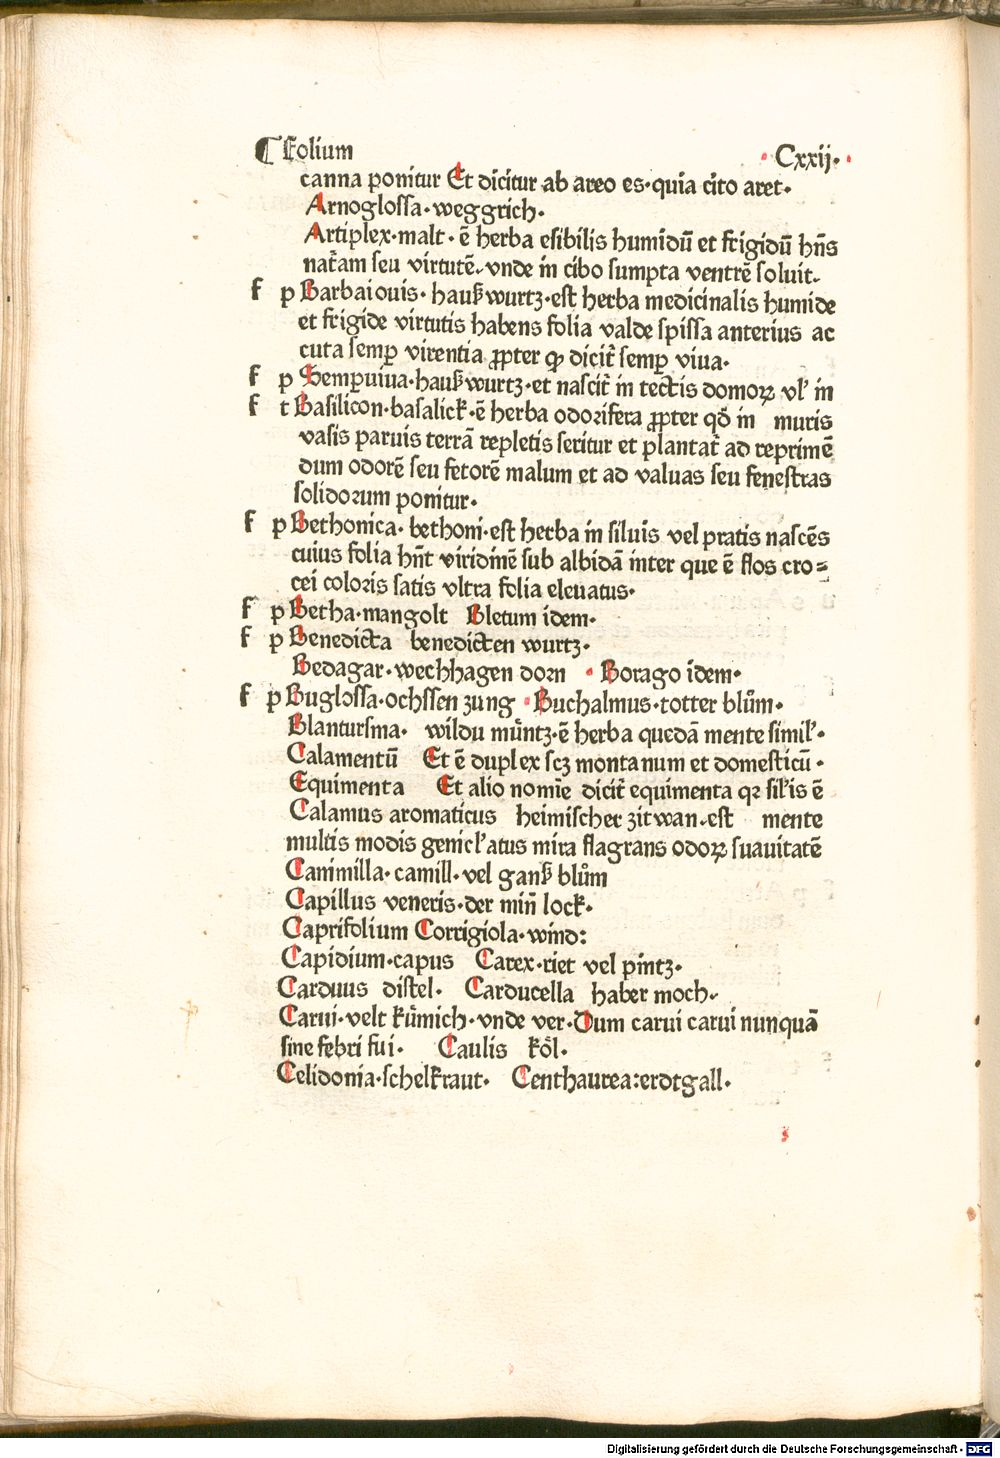 ¶ Folium Cxxij.
canna ponitur Et dicitur ab areo es·quia cito aret.
Arnoglossa·weggrich.
Artiplex·malt·ē herba esibilis humidū et frigidū hn̄s
nat᷑am seu virtutē·vnde in cibo sumpta ventrē soluit.
f p Barbaiouis·haußwurtz·est herba medicinalis humide
et frigide virtutis habens folia valde spissa anterius ac
cuta semꝑ virentia ꝓpter qꝫ dicit᷑ semꝑ viua.
f p Sempuiua·haußwurtz·et nascit᷑ in tectis domoꝝ vl' in
f t Basilicon·basalick·ē herba odorifera ꝓpter qd̄ in muris
vasis paruis terrā repletis seritur et plantat᷑ ad reprimē
dum odorē seu fetorē malum et ad valuas seu fenestras
solidorum ponitur.
f p Bethonica·bethoni·est herba in siluis vel pratis nascēs
cuius folia hn̄t viridinē sub albidā inter que ē flos cro=
cei coloris satis vltra folia eleuatus.
f p Betha·mangolt Bletum idem.
f p Benedicta benedicten wurtz.
Bedagar·wechhagen dorn Borago idem.
f p Buglossa·ochssen zung Buchalmus·totter blům.
Blantursma· wildu müntz·ē herba quedā mente simil'.
Calamentū Et ē duplex scz montanum et domesticū.
Equimenta Et alio nomīe dicit᷑ equimenta qꝛ sil'is ē
Calamus aromaticus heimischer zitwan·est mente
multis modis genicl'atus mira flagrans odoꝝ suauitatē
Canimilla·camill·vel ganß blům
Capillus veneris·der min̄ lock.
Caprifolium Corrigiola·wind:
Capidium·capus Carex·riet vel pintz.
Carduus distel. Carducella haber moch.
Carui·velt kümich·vnde ver·Dum carui carui nunquā
sine febri fui. Caulis kȫl.
Celidonia·schelkraut. Centhaurea:erdtgall.
Digitalisierung gefördert durch die Deutsche Forschungsgemeinschaft - DFG